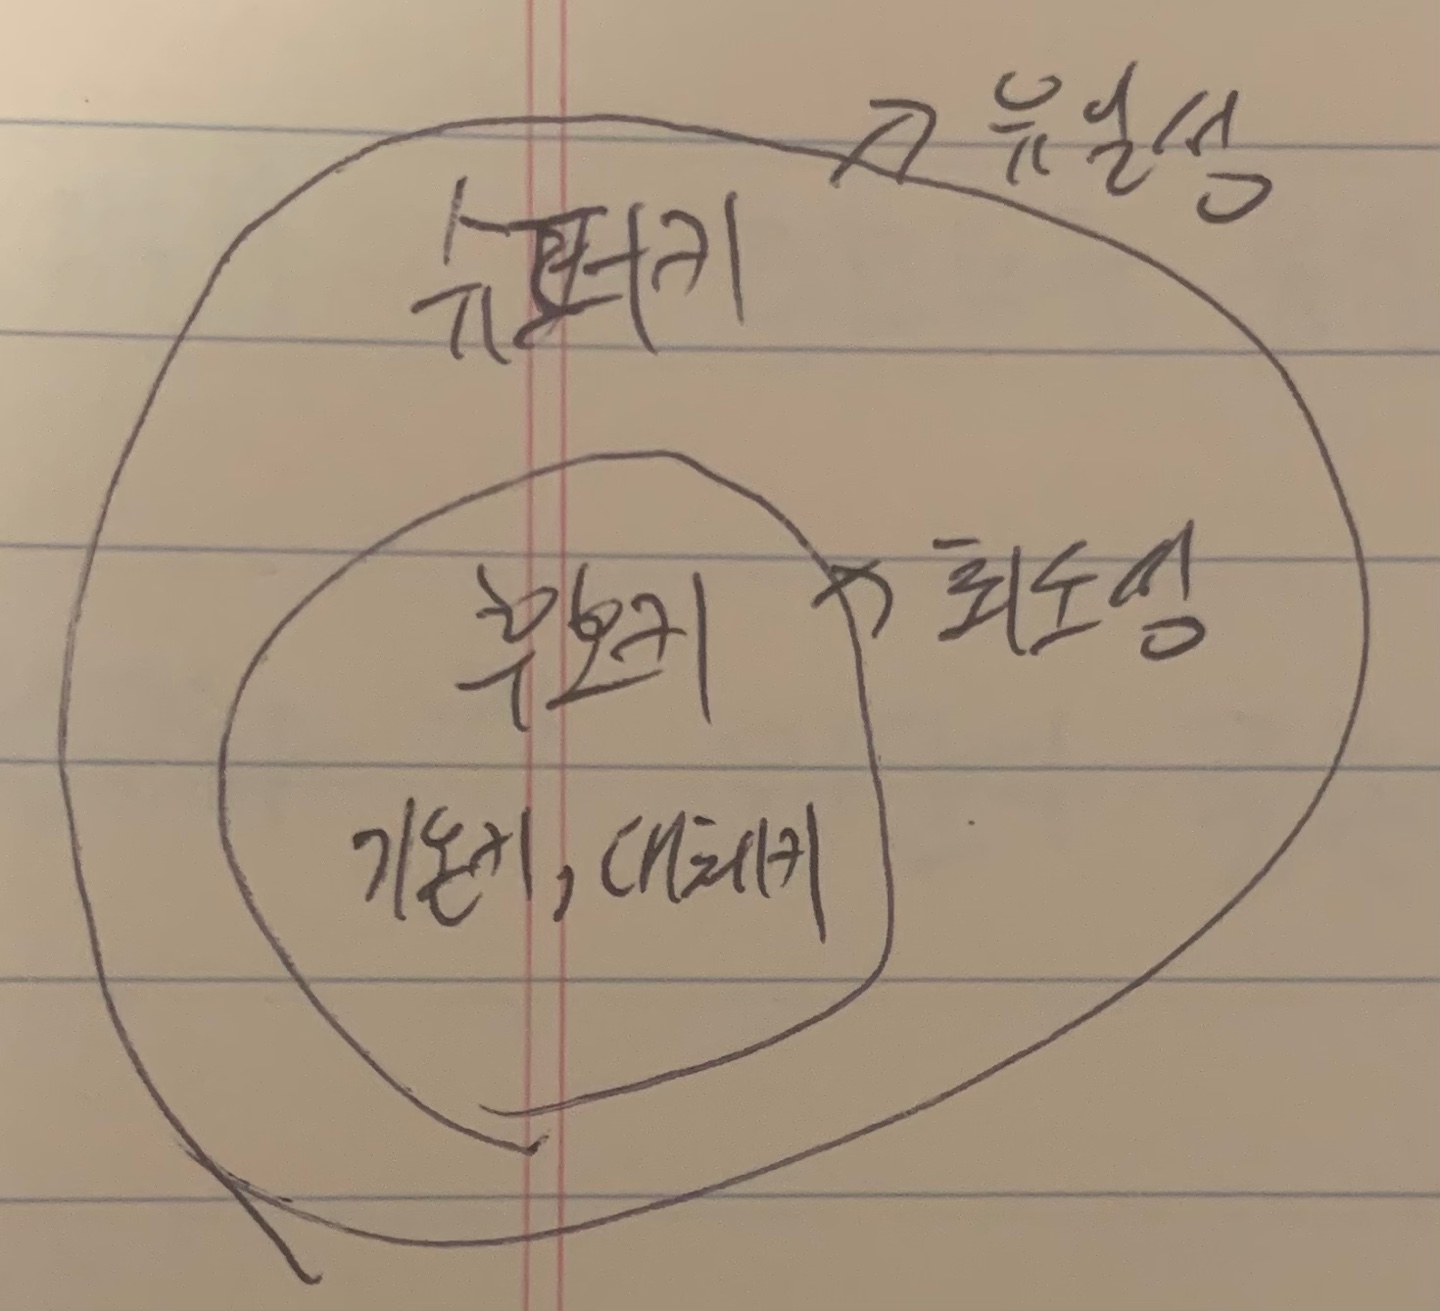 유일성
슈퍼키
최소성
후보키
기본키, 대체키